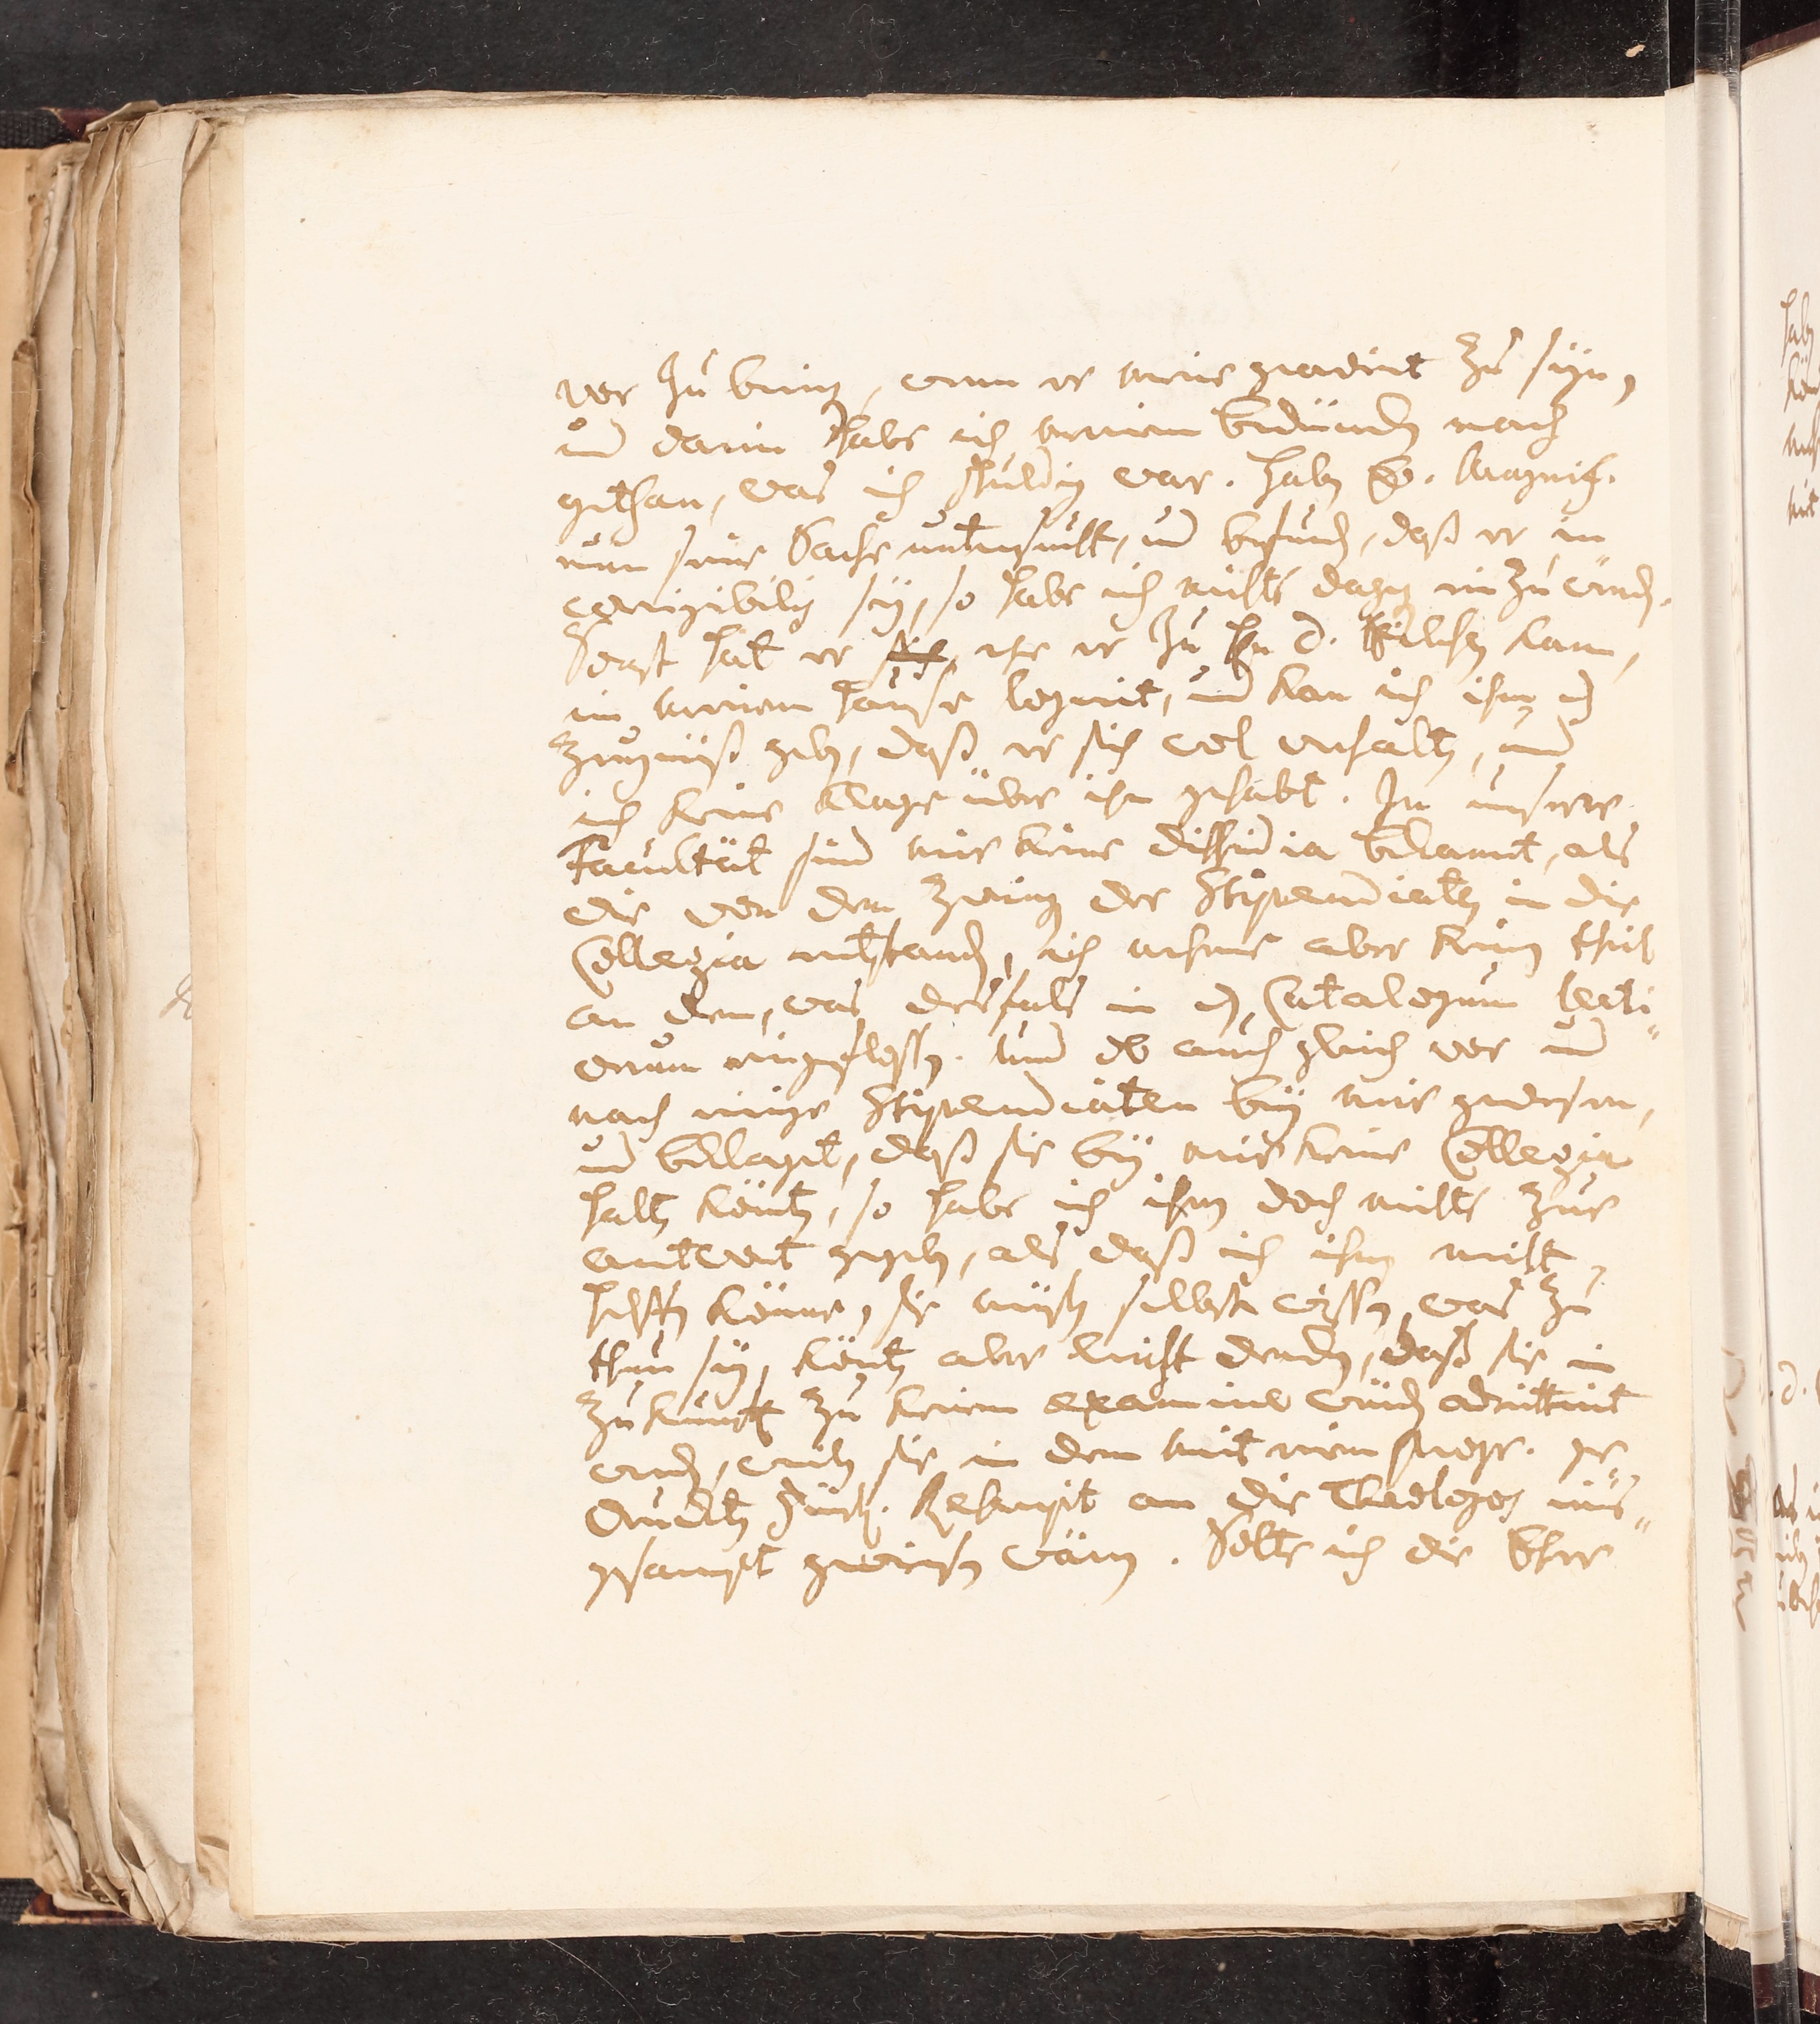 vor zu bringen, wenn er meine gradirt zu seyn,
und darin habe ich meinem bedüncken nach
gethan, was ich schuldig war. Haben Ew. Magnif.
nun seine Sache untersucht, und befunden, daß er in-
corrigibilis sey, so habe ich nichts dagegen ein zu wenden.
Sonst hat er sich, ehe er zu Hn D. kam,
in meinem Hause logirt, und kan ich ihm das
Zeugniß geben, daß er sich wol verhalten, und
ich keine klage über ihn gehabt. In unserer
Facultät sind mir keine dissidia bekannt, als
die von dem zwing der Stipendiaten in die
Collegia entstanden, ich nehme aber keinen theil
an dem, was desfals in den Catalogum lecti-
onum eingeflossen. Und ob auch gleich vor und
nach einige Stipendiaten bey mir gewesen,
und beklaget, daß sie bey mir keine Collegia
halten könten, so habe ich ihnen doch nichts zur
antwort gegeben, als daß ich ihnen nicht
helffen könne, sie müsten selbst wissen, was zu
thun sey, könten aber leicht dencken, daß sie in
Zukunft zu keinem examine würden admittirt
werden, weil sie in dem mit einem ge-
druckten Fürstl. Rescript an die Theologos ins-
gesampt gewiesen wären. Solte ich die Ehre